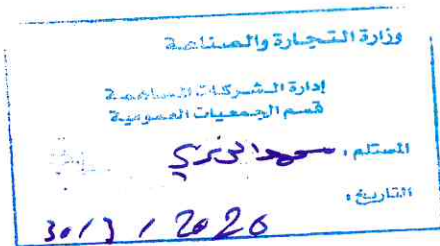 وزارة التجارة والصناعة
إدارة الشركات المساهمة
قسم الجمعيات العمومية
المستلم :
التاريخ :
30/3/2020